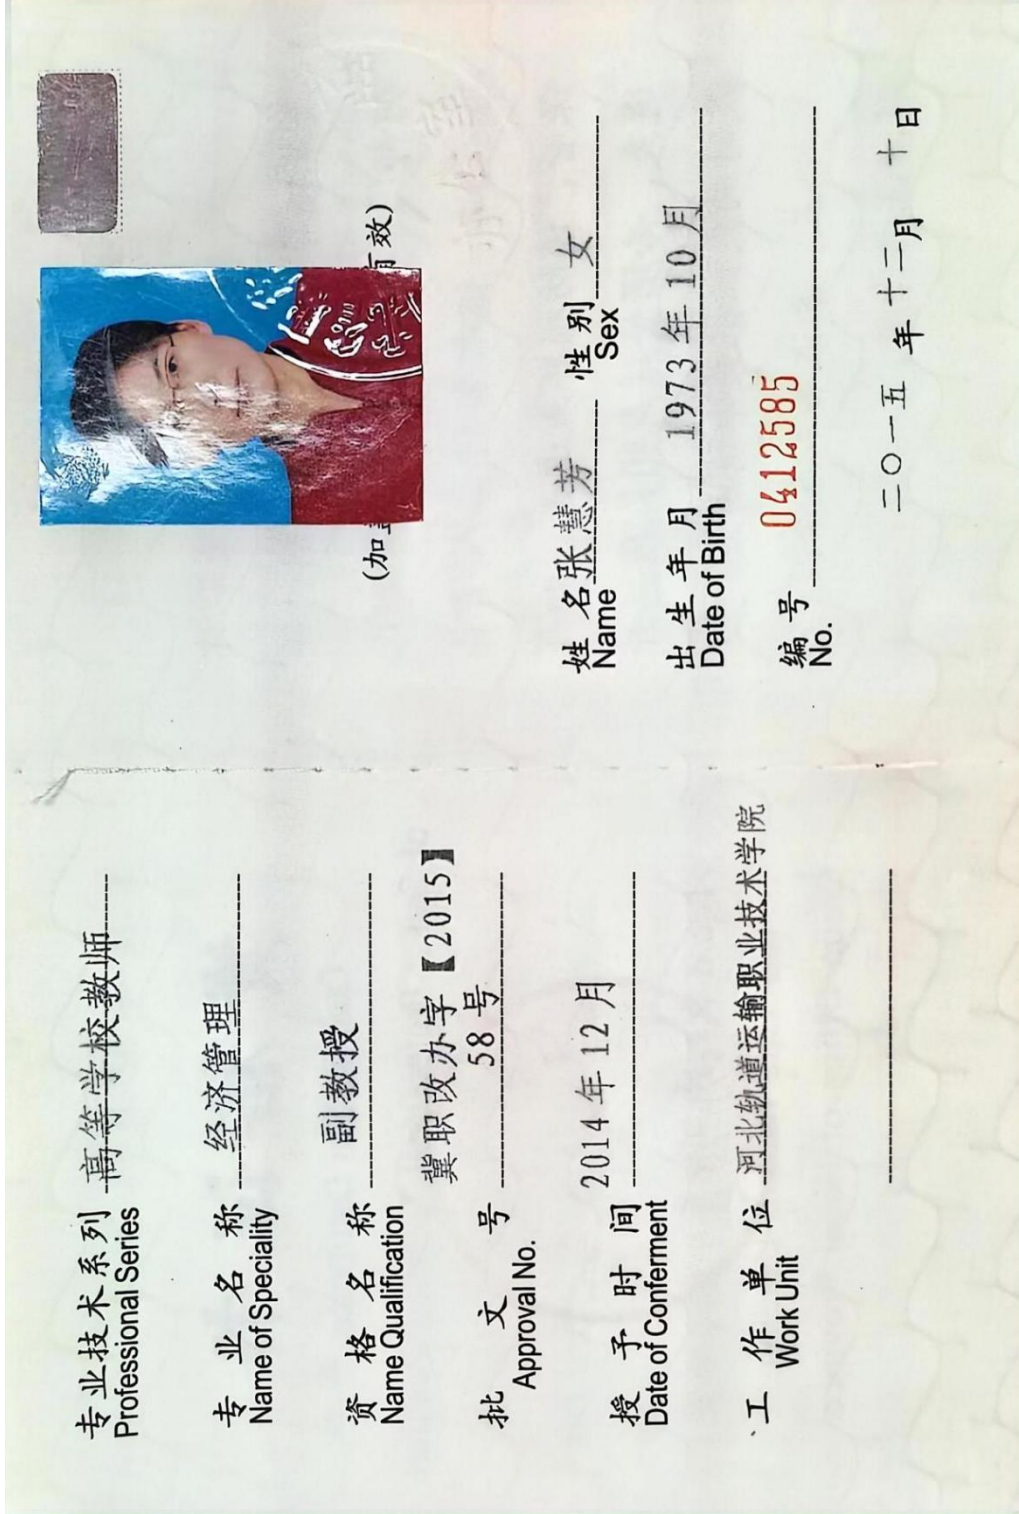 专业技术系列 高等学校教师
Professional Series
专业名称 经济管理
Name of Speciality
资格名称 副教授
Name Qualification
冀职改办字【2015】
批文号 58号
Approval No.
授予时间 2014年12月
Date of Conferment
工作单位 河北轨道运输职业技术学院
Work Unit
(加 有效)
姓名 张慧芳 性别 女
Name Sex
出生年月 1973年10月
Date of Birth
编号 0412585
No.
二〇一五年十二月十日